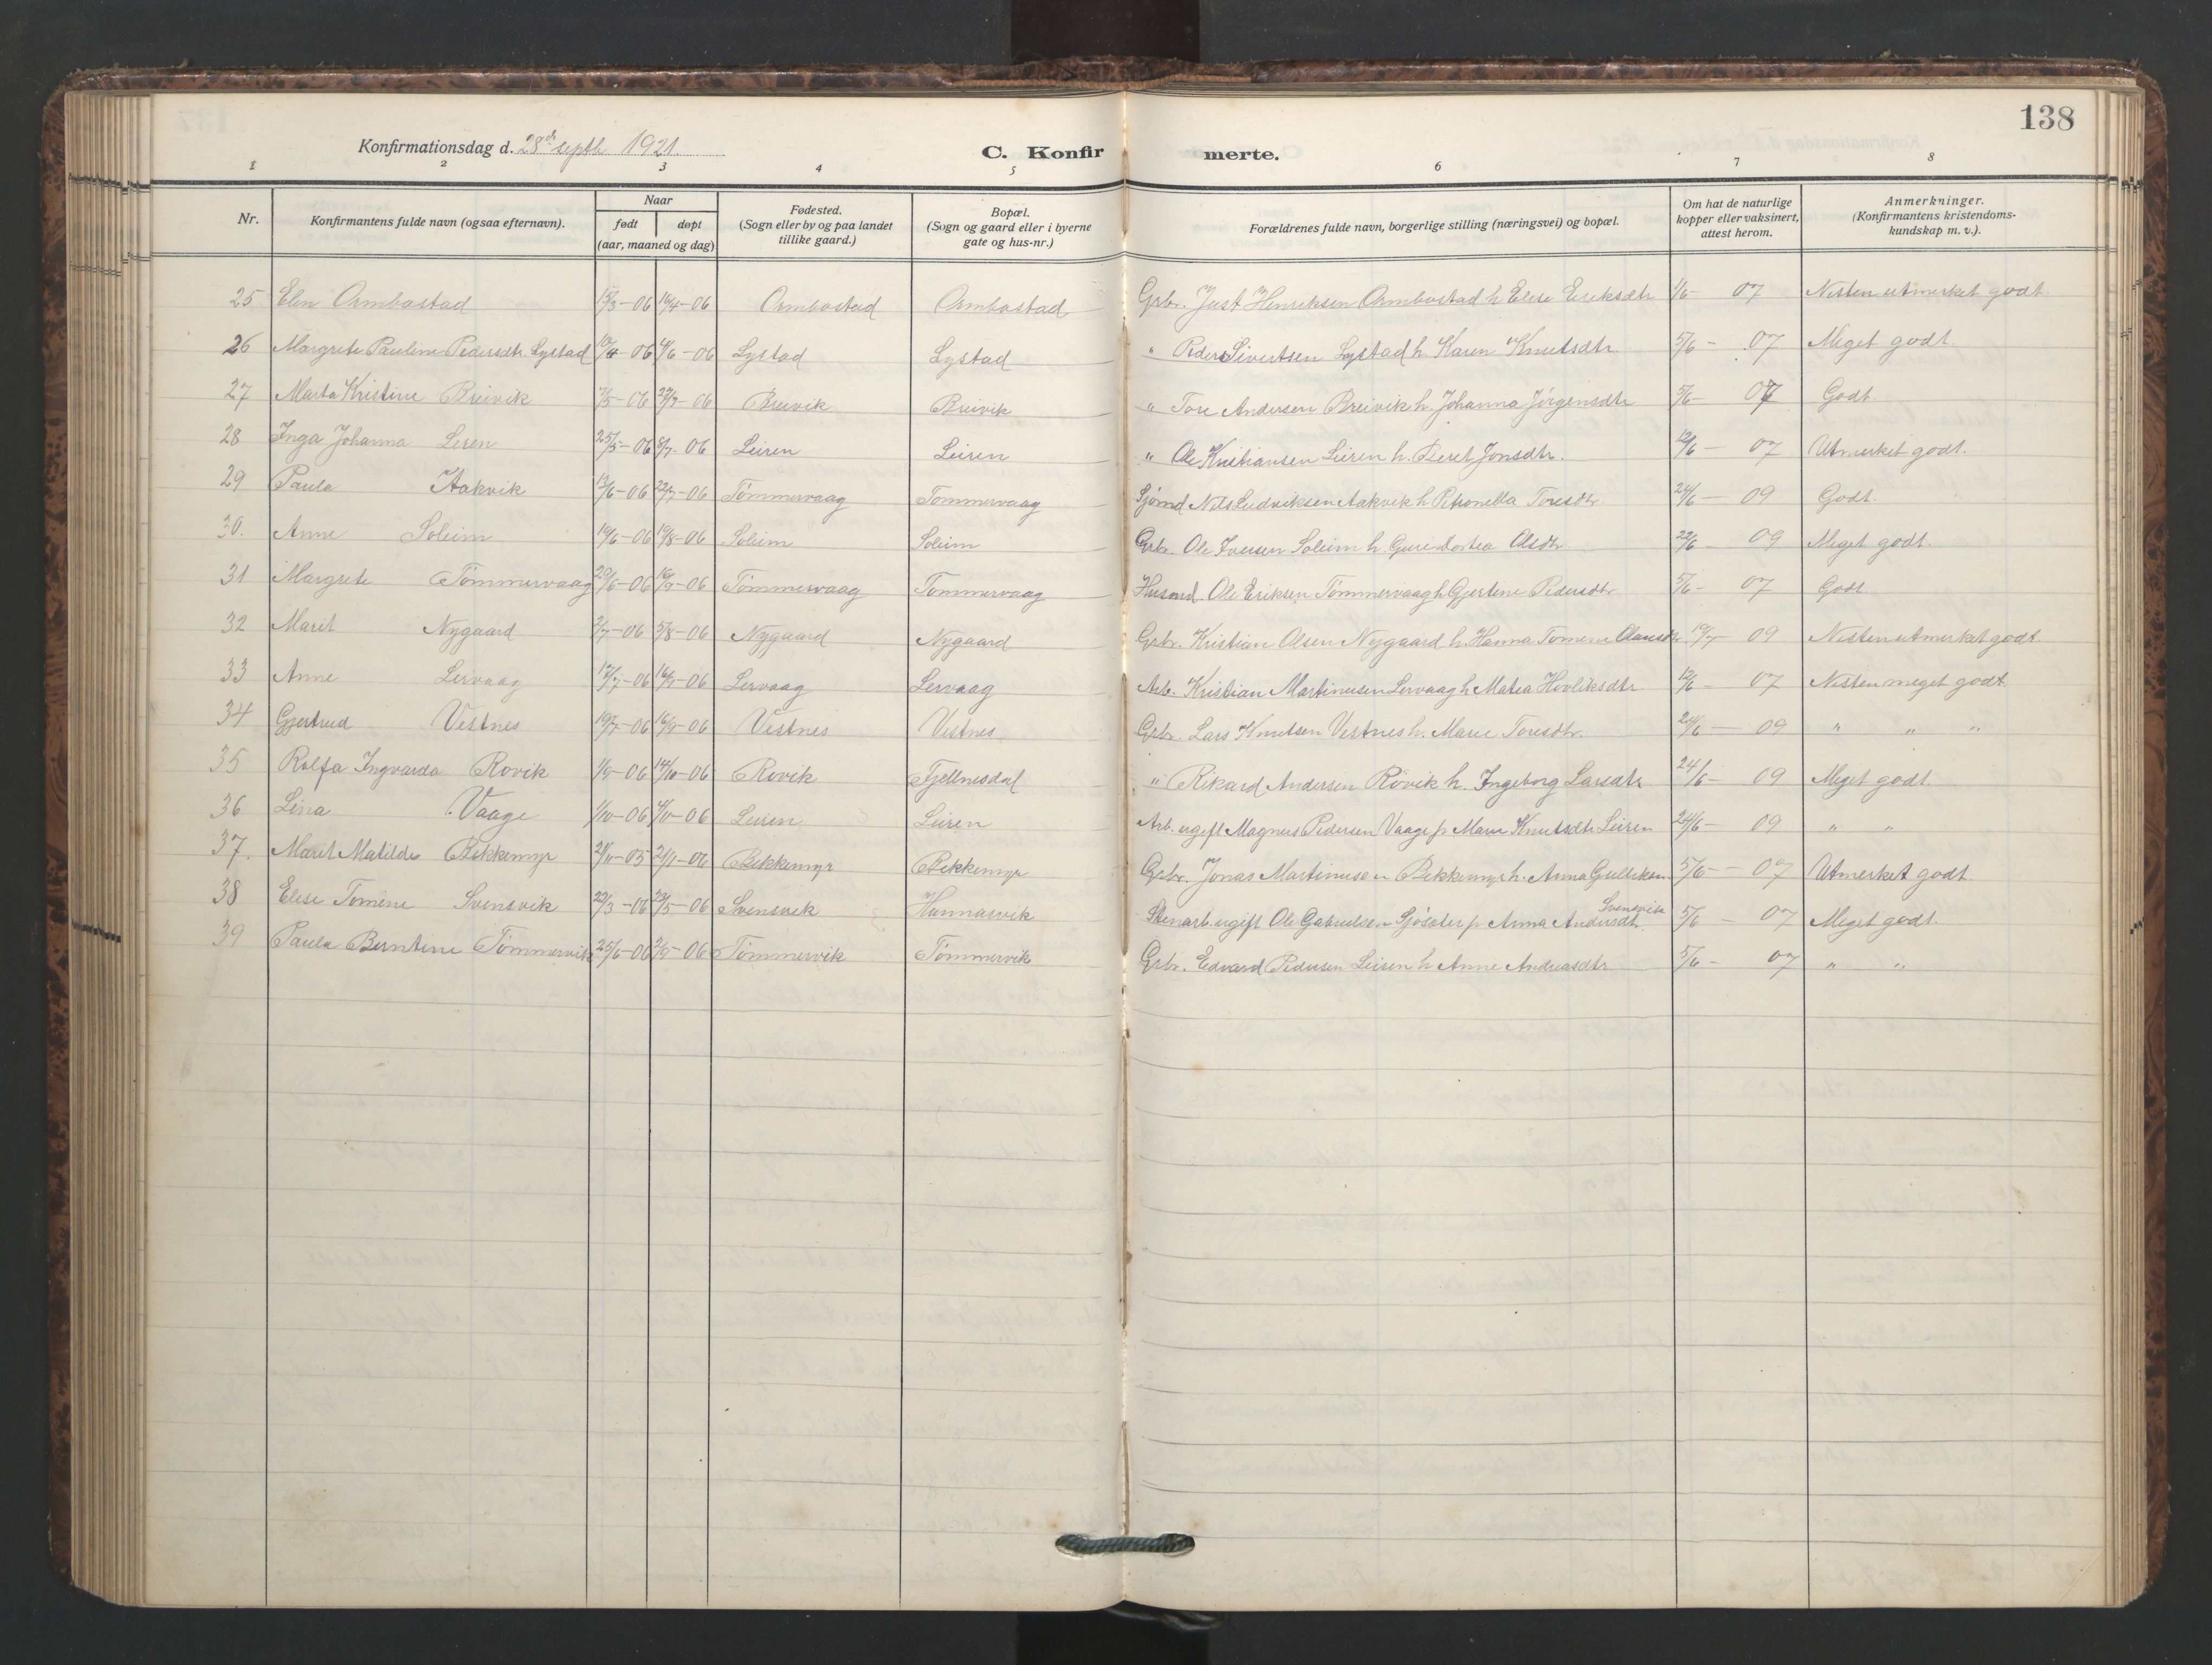 138
Konfirmationsdag d. 28de septb. 1921.
C. Konfir merte.
1 2 3 4 5 6 7 8
Nr. Konfirmantens fulde navn (ogsaa efternavn). Naar født døpt (aar, maaned og dag) Fødested. (Sogn eller by og paa landet tillike gaard.) Bopæl. (Sogn og gaard eller i byerne gate og hus-nr.) Forældrenes fulde navn, borgerlige stilling (næringsvei) og bopæl. Om hat de naturlige kopper eller vaksinert, attest herom. Anmerkninger. (Konfirmantens kristendoms-kundskap m. v.).
25 Elen Ormbostad 15/3-06 16/4-06 Ormbostad Ormbostad Grbr. Just Henriksen Ormbostad h Elise Eriksdtr 1/6- 07 Nesten utmerket godt
26 Margrete Pauline Pedersdtr. Lystad 10/4-06 4/6-06 Lystad Lystad " Peder Sivertsen Lystad h. Karen Knutsdtr 5/6- 07 Meget godt
27 Marta Kristine Breivik 7/5-06 22/7-06 Breivik Breivik " Tore Andersen Breivik h. Johanna Jørgensdtr 5/6- 07 Godt
28 Inga Johanna Leren 25/5-06 8/7-06 Leiren Leiren " Ole Kristiansen Leiren h. Beret Jonsdtr. 12/6- 07 Utmerket godt.
29 Paula Aakvik 13/6-06 22/7-06 Tømmervaag Tømmervaag Sjømd Nils Ludviksen Aakvik h Petronella Toresdtr 24/6- 09 Godt.
30. Anne Soleim 19/6-06 19/8-06 Soleim Soleim Grbr. Ole Iversen Soleim h. Guri Dortea Olsdtr 22/6- 09 Meget godt.
31 Margrete Tømmervaag 29/6-06 16/9-06 Tømmervaag Tømmervaag Husmd Ole Eriksen Tømmervaag h Gjertine Pedersdtr 5/6- 07 Godt
32 Marit Nygaard 2/7-06 5/8-06 Nygaard Nygaard Grbr. Kristian Olsen Nygaard h. Hanna Tomine Olausdtr 19/7- 09 Nesten utmerket godt
33 Anne Lervaag 12/7-06 16/9-06 Lervaag Lervaag Arb. Kristian Martinusen Lervaag h Matea Hovliksdtr 12/6- 07 Nesten meget godt
34 Gjertrud Vestnes 19/7-06 16/9-06 Vestnes Vestnes Grbr. Lars Knutsen Vestnes h. Marie Toresdtr. 24/6- 09 " " "
35 Rolfa Ingvarda Rovik 1/9-06 14/10-06 Rovik Fjellnesdal " Rikard Andersen Røvik h. Ingeborg Larsdtr 24/6- 09 Meget godt
36 Lina Vaage 1/10-06 4/11-06 Leiren Leiren Arb. ugift Magnus Pedersen Vaage p Marie Knutsdtr Leiren 24/6- 09 " "
37. Marit Matilde Bekkemyr 21/11-05 21/1-06 Bekkemyr Bekkemyr Grbr. Jonas Martinusen Bekkemyr h. Anna Gulliksen 5/6- 07 Utmerket godt
38 Elise Tomine Svensvik 22/3-06 24/5-06 Svensvik Hannasvik Stenarb. ugift Ole Gabrielsen Sjøsæter p Anna Andersdtr Svensvik 5/6- 07 Meget godt.
39 Paula Berntine Tømmervik 25/6-06 2/9-06 Tømmervik Tømmervik Grbr. Edvard Pedersen Leiren h Anne Andreasdtr 5/6- 07 " "